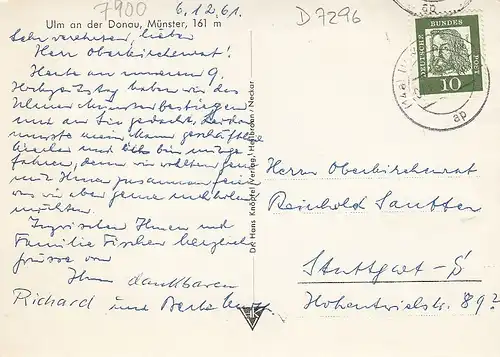 7900
6.12.61.
D 7296
Ulm an der Donau, Münster, 161 m
Sehr verehrter, lieber
Herr Oberkirchenrat!
Heute an unserem 9.
Hochzeitstag haben wir das
Ulmer Münster bestiegen
und an Sie gedacht. Leider
musste mein Mann geschäftlich
und ich bin mitge-
fahren, denn wir wollten
mit Ihnen zusammen
was wir aber gerne nachholen
möchten.
Inzwischen Ihnen und
Familie Fischer herzliche
Grüsse von
Ihren dankbaren
Richard und
Dr. Hans Knöpfel Verlag, Heilbronn/Neckar
DEUTSCHE BUNDESPOST
10
Herrn Oberkirchenrat
Reinhold Sautter
Stuttgart-S
Hohentwielstr. 89?